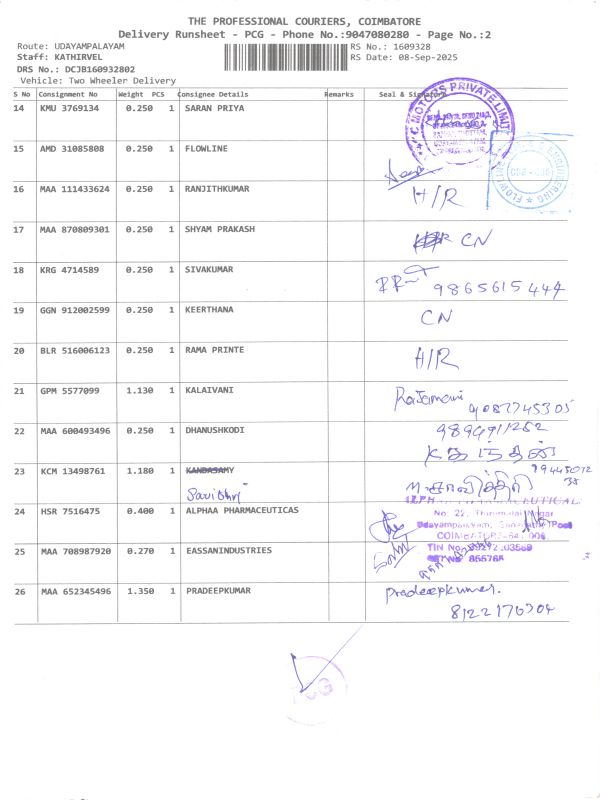 THE PROFESSIONAL COURIERS, COIMBATORE
Delivery Runsheet - PCG - Phone No.:9047080280 - Page No.:2
Route: UDAYAMPALAYAM RS No.: 1609328
Staff: KATHIRVEL RS Date: 08-Sep-2025
DRS No.: DCJB160932802
Vehicle: Two Wheeler Delivery
S No Consignment No Weight PCS Consignee Details Remarks Seal & Signature
14 KMU 3769134 0.250 1 SARAN PRIYA
MOTORS PRIVATE LIMIT
15 AMD 31085808 0.250 1 FLOWLINE
16 MAA 111433624 0.250 1 RANJITHKUMAR H/R
17 MAA 870809301 0.250 1 SHYAM PRAKASH CN
18 KRG 4714589 0.250 1 SIVAKUMAR 9865615444
19 GGN 912002599 0.250 1 KEERTHANA CN
20 BLR 516006123 0.250 1 RAMA PRINTE H/R
21 GPM 5577099 1.130 1 KALAIVANI Rajamani
9087745305
22 MAA 600493496 0.250 1 DHANUSHKODI
23 KCM 13498761 1.180 1 KANDASAMY
Savithri
24 HSR 7516475 0.400 1 ALPHAA PHARMACEUTICAS
Udayampalayam,
25 MAA 708987920 0.270 1 EASSANINDUSTRIES
26 MAA 652345496 1.350 1 PRADEEPKUMAR Pradeepkumar.
8122170304